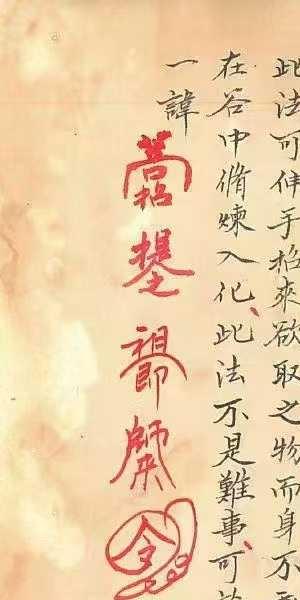 此法可伸手招來欲取之物而身不
在谷中脩煉入化、此法不是難事、可
一諱
令